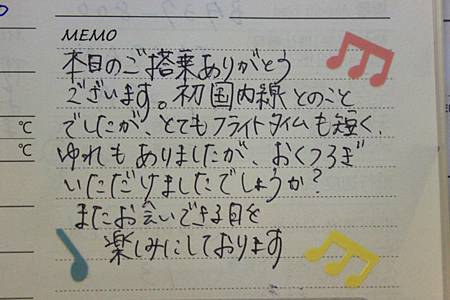 MEMO
本日のご搭乗ありがとう
ございます。初国内線とのこと
でしたが、とてもフライトタイムも短く、
ゆれもありましたが、おくつろぎ
いただけましたでしょうか?
またお会いできる日を
楽しみにしております
℃
℃